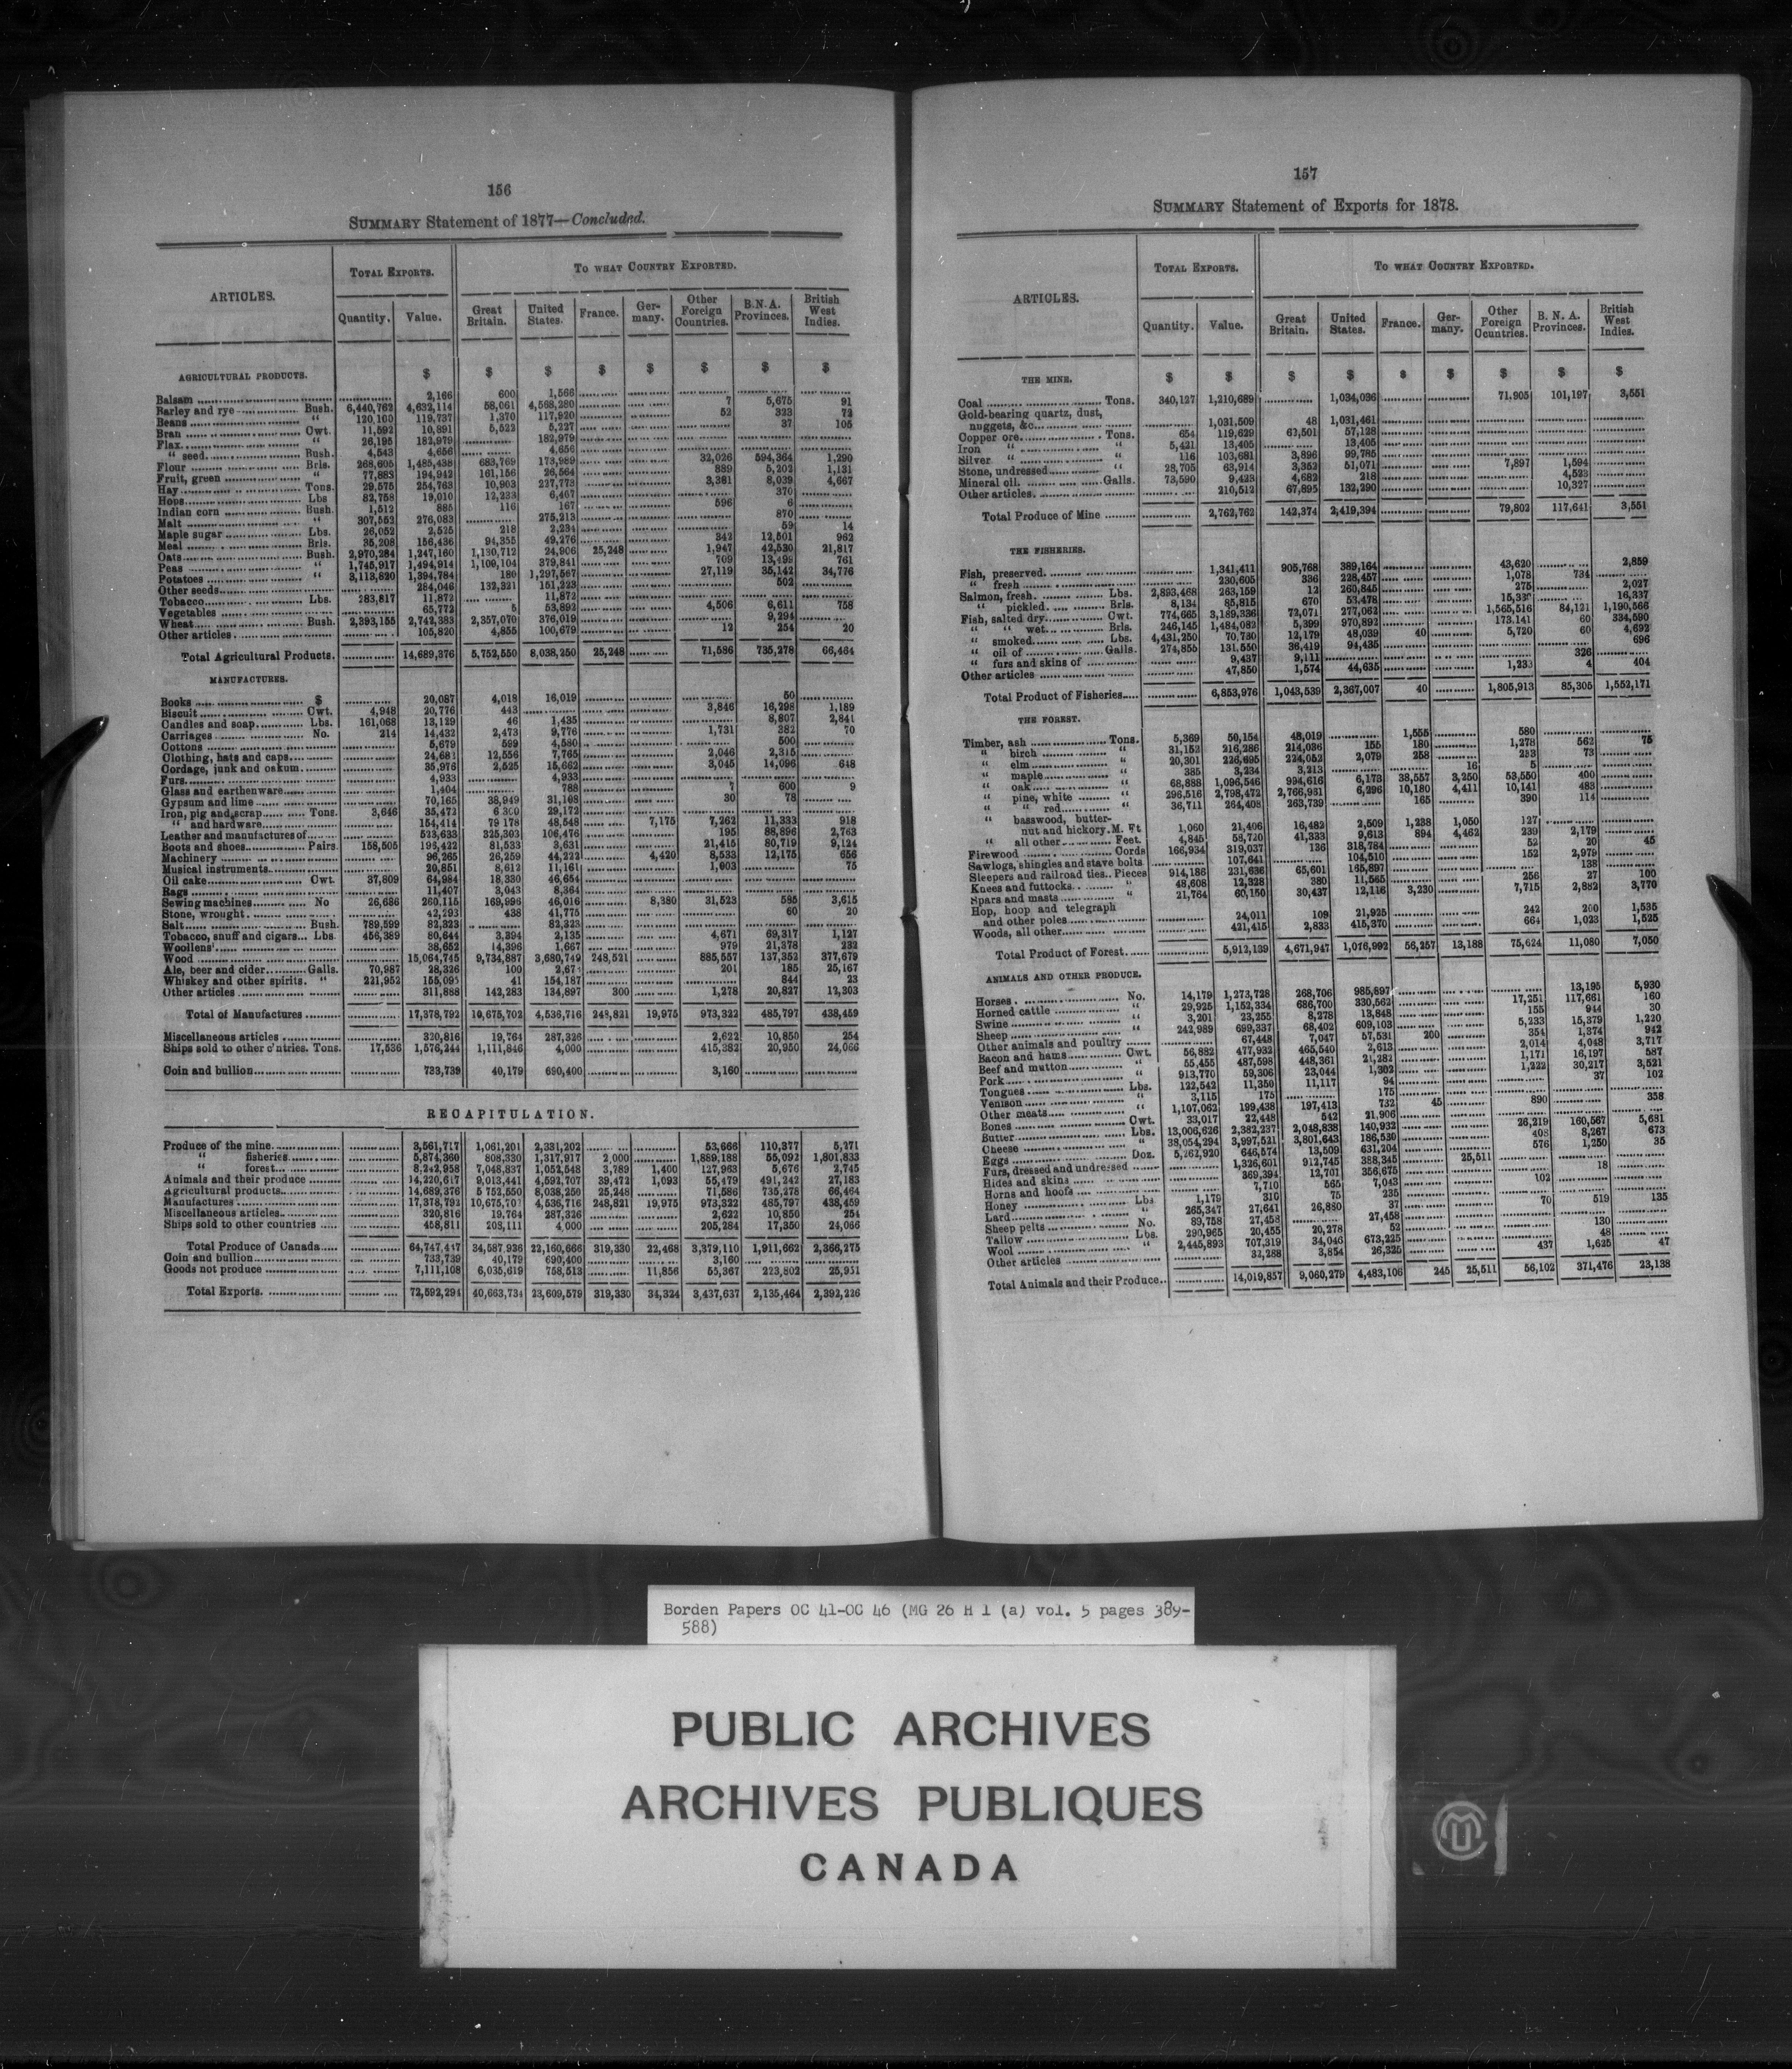 156
SUMMARY Statement of 1877—Concluded.
ARTICLES. TOTAL EXPORTS. TO WHAT COUNTRY EXPORTED.
Quantity. Value. Great Britain. United States. France. Germany. Other Foreign Countries. B.N.A. Provinces. British West Indies.
AGRICULTURAL PRODUCTS. $ $ $ $ $ $ $ $
Balsam 2,166 600 1,566
Barley and rye Bush. 6,440,762 4,632,114 58,061 4,568,280 7 5,675 91
Beans " 120,160 119,737 1,370 117,920 52 323 72
Bran Cwt. 11,592 10,891 5,522 5,227 37 105
Flax " 26,195 182,979 182,979
" seed Bush. 4,543 4,656 4,656
Flour Brls. 268,605 1,485,438 683,769 173,989 32,026 594,364 1,290
Fruit, green " 77,883 194,942 161,156 26,564 889 5,202 1,131
Hay Tons. 29,575 254,763 10,903 227,773 3,381 8,039 4,667
Hops Lbs 82,758 19,010 12,233 6,407 370
Indian corn Bush. 1,512 885 116 167 596 6
Malt " 307,552 276,083 275,213 870
Maple sugar Lbs. 26,052 2,525 218 2,234 59 14
Meal Brls. 35,208 156,436 94,355 49,276 342 12,501 962
Oats Bush. 2,970,284 1,247,160 1,130,712 24,906 25,248 1,947 42,530 21,817
Peas " 1,745,917 1,494,914 1,109,104 379,841 709 13,499 761
Potatoes " 3,113,820 1,394,784 180 1,297,567 27,119 35,142 34,776
Other seeds 284,046 132,321 151,223 502
Tobacco Lbs. 283,817 11,872 11,872
Vegetables 65,772 5 53,892 4,506 6,611 758
Wheat Bush. 2,393,155 2,742,383 2,357,070 376,019 9,294
Other articles 105,820 4,855 100,679 12 254 20
Total Agricultural Products. 14,689,376 5,752,550 8,038,250 25,248 71,586 735,278 66,464
MANUFACTURES.
Books $ 20,087 4,018 16,019 50
Biscuit Cwt. 4,948 20,776 443 3,846 16,298 1,189
Candles and soap Lbs. 161,068 13,129 46 1,435 8,807 2,841
Carriages No. 214 14,432 2,473 9,776 1,731 382 70
Cottons 5,679 599 4,580 500
Clothing, hats and caps 24,682 12,556 7,765 2,046 2,315
Cordage, junk and oakum 35,976 2,525 15,662 3,045 14,096 648
Furs 4,933 4,933
Glass and earthenware 1,404 788 7 600 9
Gypsum and lime 70,165 38,949 31,108 30 78
Iron, pig and scrap Tons. 3,646 35,472 6 300 29,172
" and hardware 154,414 79 178 48,548 7,175 7,262 11,333 918
Leather and manufactures of 523,633 325,303 106,476 195 88,896 2,763
Boots and shoes Pairs. 158,505 196,422 81,533 3,631 21,415 80,719 9,124
Machinery 96,265 26,259 44,222 4,420 8,533 12,175 656
Musical instruments 20,851 8,612 11,161 1,003 75
Oil cake Cwt. 37,809 64,984 18,330 46,654
Rags 11,407 3,043 8,364
Sewing machines No 26,686 260,115 169,996 46,016 8,380 31,523 585 3,615
Stone, wrought 42,293 438 41,775 60 20
Salt Bush. 789,599 82,323 82,323
Tobacco, snuff and cigars Lbs. 456,389 80,644 3,394 2,135 4,671 69,317 1,127
Woollens 38,652 14,396 1,667 979 21,378 232
Wood 15,064,745 9,734,887 3,680,749 248,521 885,557 137,352 377,679
Ale, beer and cider Galls. 70,987 28,326 100 201 185 25,167
Whiskey and other spirits. " 221,952 155,095 41 154,187 844 23
Other articles 311,888 142,283 134,897 300 1,278 20,827 12,303
Total of Manufactures 17,378,792 10,675,702 4,536,716 248,821 19,975 973,322 485,797 438,459
Miscellaneous articles 320,816 19,764 287,326 2,622 10,850 254
Ships sold to other c'ntries. Tons. 17,536 1,576,244 1,111,846 4,000 415,382 20,950 24,066
Coin and bullion 733,739 40,179 690,400 3,160
RECAPITULATION.
Produce of the mine 3,561,717 1,061,201 2,331,202 53,666 110,377 5,271
" fisheries 5,874,360 808,330 1,317,917 2,000 1,889,188 55,092 1,801,833
" forest 8,242,958 7,048,837 1,052,548 3,789 1,400 127,963 5,676 2,745
Animals and their produce 14,220,617 9,013,441 4,592,707 39,472 1,093 55,479 491,242 27,183
Agricultural products 14,689,376 5 752,550 8,038,250 25,248 71,586 735,278 66,464
Manufactures 17,378,792 10,675,702 4,536,716 248,821 19,975 973,322 485,797 438,459
Miscellaneous articles 320,816 19,764 287,326 2,622 10,850 254
Ships sold to other countries 458,811 208,111 4,000 205,284 17,350 24,066
Total Produce of Canada 64,747,447 34,587,936 22,160,666 319,330 22,468 3,379,110 1,911,662 2,366,275
Coin and bullion 733,739 40,179 690,400 3,160
Goods not produce 7,111,108 6,035,619 758,513 11,856 55,367 223,802 25,951
Total Exports. 72,592,294 40,663,734 23,609,579 319,330 34,324 3,437,637 2,135,464 2,392,226
157
SUMMARY Statement of Exports for 1878.
ARTICLES. TOTAL EXPORTS. TO WHAT COUNTRY EXPORTED.
Quantity. Value. Great Britain. United States. France. Germany. Other Foreign Countries. B. N. A. Provinces. British West Indies.
THE MINE. $ $ $ $ $ $ $ $ $
Coal Tons. 340,127 1,210,689 1,034,036 71,905 101,197 3,551
Gold-bearing quartz, dust,
nuggets, &c 1,031,509 48 1,031,461
Copper ore Tons. 654 119,629 62,501 57,128
Iron " " 5,421 13,405 13,405
Silver " " 116 103,681 3,896 99,785
Stone, undressed " 28,705 63,914 3,352 51,071 7,897 1,594
Mineral oil Galls. 73,590 9,423 4,682 218 4,523
Other articles 210,512 67,895 132,290 10,327
Total Produce of Mine 2,762,762 142,374 2,419,394 79,802 117,641 3,551
THE FISHERIES.
Fish, preserved 1,341,411 905,768 389,164 43,620 2,859
" fresh 230,605 336 228,457 1,078 734
Salmon, fresh Lbs. 2,893,468 263,159 12 260,845 275 2,027
" pickled Brls. 8,134 85,815 670 53,478 16,337
Fish, salted dry Cwt. 774,665 3,189,336 73,071 277,062 1,565,516 84,121 1,190,566
" " wet Brls. 246,145 1,484,082 5,399 970,892 173,141 60 334,590
" smoked Lbs. 4,431,250 70,730 12,179 48,039 40 5,720 60 4,692
" oil of Galls. 274,855 131,550 36,419 94,435 696
" furs and skins of 9,437 9,111 326
Other articles 47,850 1,574 44,635 1,233 4 404
Total Product of Fisheries 6,853,976 1,043,539 2,367,007 40 1,805,913 85,305 1,552,171
THE FOREST.
Timber, ash Tons. 5,369 50,154 48,019 1,555 580
" birch " 31,152 216,286 214,036 155 180 1,278 562 75
" elm " 20,301 226,695 224,052 2,079 258 233 73
" maple " 385 3,234 3,213 16 5
" oak " 68,888 1,096,546 994,616 6,173 38,557 3,250 53,550 400
" pine, white " 296,516 2,798,472 2,766,961 6,296 10,180 4,411 10,141 483
" " red " 36,711 264,408 263,739 165 390 114
" basswood, butter-
nut and hickory M. Ft 1,060 21,406 16,482 2,509 1,238 1,050 127
" all other Feet. 4,845 58,720 41,333 9,613 894 4,462 239 2,179
Firewood Cords 166,934 319,037 136 318,784 52 20 45
Sawlogs, shingles and stave bolts 107,641 104,510 152 2,979
Sleepers and railroad ties Pieces 914,186 231,636 65,601 165,897 138
Knees and futtocks " 48,608 12,328 380 11,565 256 27 100
Spars and masts " 21,764 60,150 30,437 12,116 3,230 7,715 2,882 3,770
Hop, hoop and telegraph
and other poles 24,011 109 21,925 242 200 1,535
Woods, all other 421,415 2,833 415,370 664 1,023 1,525
Total Product of Forest 5,912,139 4,671,947 1,076,992 56,257 13,188 75,624 11,080 7,050
ANIMALS AND OTHER PRODUCE.
Horses No. 14,179 1,273,728 268,706 985,897 13,195 5,930
Horned cattle " 29,925 1,152,334 686,700 330,562 17,251 117,661 160
Swine " 3,201 23,255 8,278 13,848 155 944 30
Sheep " 242,989 699,337 68,402 609,103 5,233 15,379 1,220
Other animals and poultry 67,448 7,047 57,531 200 354 1,374 942
Bacon and hams Cwt. 56,882 477,932 465,540 2,613 2,014 4,048 3,717
Beef and mutton " 55,455 487,598 448,361 21,282 1,171 16,197 587
Pork " 913,770 59,306 23,044 1,302 1,222 30,217 3,521
Tongues Lbs. 122,542 11,350 11,117 94 37 102
Venison " 3,115 175 175
Other meats " 1,107,062 199,438 197,413 732 45 890 358
Bones Cwt. 33,017 22,448 542 21,906
Butter Lbs. 13,006,626 2,382,237 2,048,838 140,932 26,219 160,567 5,681
Cheese " 38,054,294 3,997,521 3,801,643 186,530 408 8,267 673
Eggs Doz. 5,262,920 646,574 13,509 631,204 576 1,250 35
Furs, dressed and undressed 1,326,601 912,745 388,345 25,511
Hides and skins 369,394 12,701 356,675 18
Horns and hoofs 7,710 565 7,043 102
Honey Lbs 1,179 310 75 235
Lard " 265,347 27,641 26,880 37 70 519 135
Sheep pelts No. 89,758 27,458 27,458
Tallow Lbs. 290,965 20,455 20,278 52 130
Wool " 2,445,893 707,319 34,046 673,225 48
Other articles 32,288 3,854 26,325 437 1,625 47
Total Animals and their Produce 14,019,857 9,060,279 4,483,106 245 25,511 56,102 371,476 23,138
Borden Papers OC 41-OC 46 (MG 26 H 1 (a) vol. 5 pages 389-
588)
PUBLIC ARCHIVES
ARCHIVES PUBLIQUES
CANADA